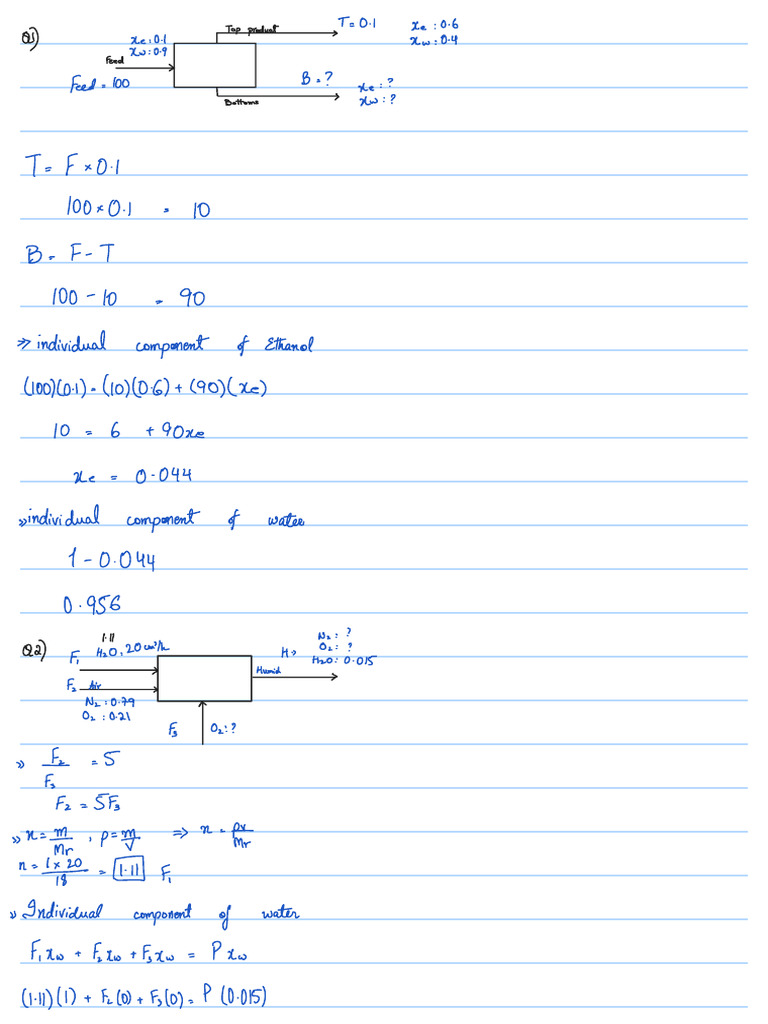 Q1)
Top product
T = 0.1
xe : 0.6
xw : 0.4
xe : 0.1
xw : 0.9
Feed
Feed = 100
B = ?
xe : ?
xw : ?
Bottoms
T = F × 0.1
100 × 0.1 = 10
B = F - T
100 - 10 = 90
⇒ individual component of Ethanol
(100)(0.1) = (10)(0.6) + (90)(xe)
10 = 6 + 90xe
xe = 0.044
» individual component of water
1 - 0.044
0.956
Q2)
1.11
F1 H2O, 20 cm³/h
H →
N2 : ?
O2 : ?
H2O : 0.015
Humid
F2 Air
N2 : 0.79
O2 : 0.21
F3 O2 : ?
» F2/F3 = 5
F2 = 5F3
» n = m/Mr , ρ = m/V ⇒ n = ρv/Mr
n = 1 × 20/18 = 1.11 F1
» Individual component of water
F1 xw + F2 xw + F3 xw = P xw
(1.11)(1) + F2(0) + F3(0) = P (0.015)